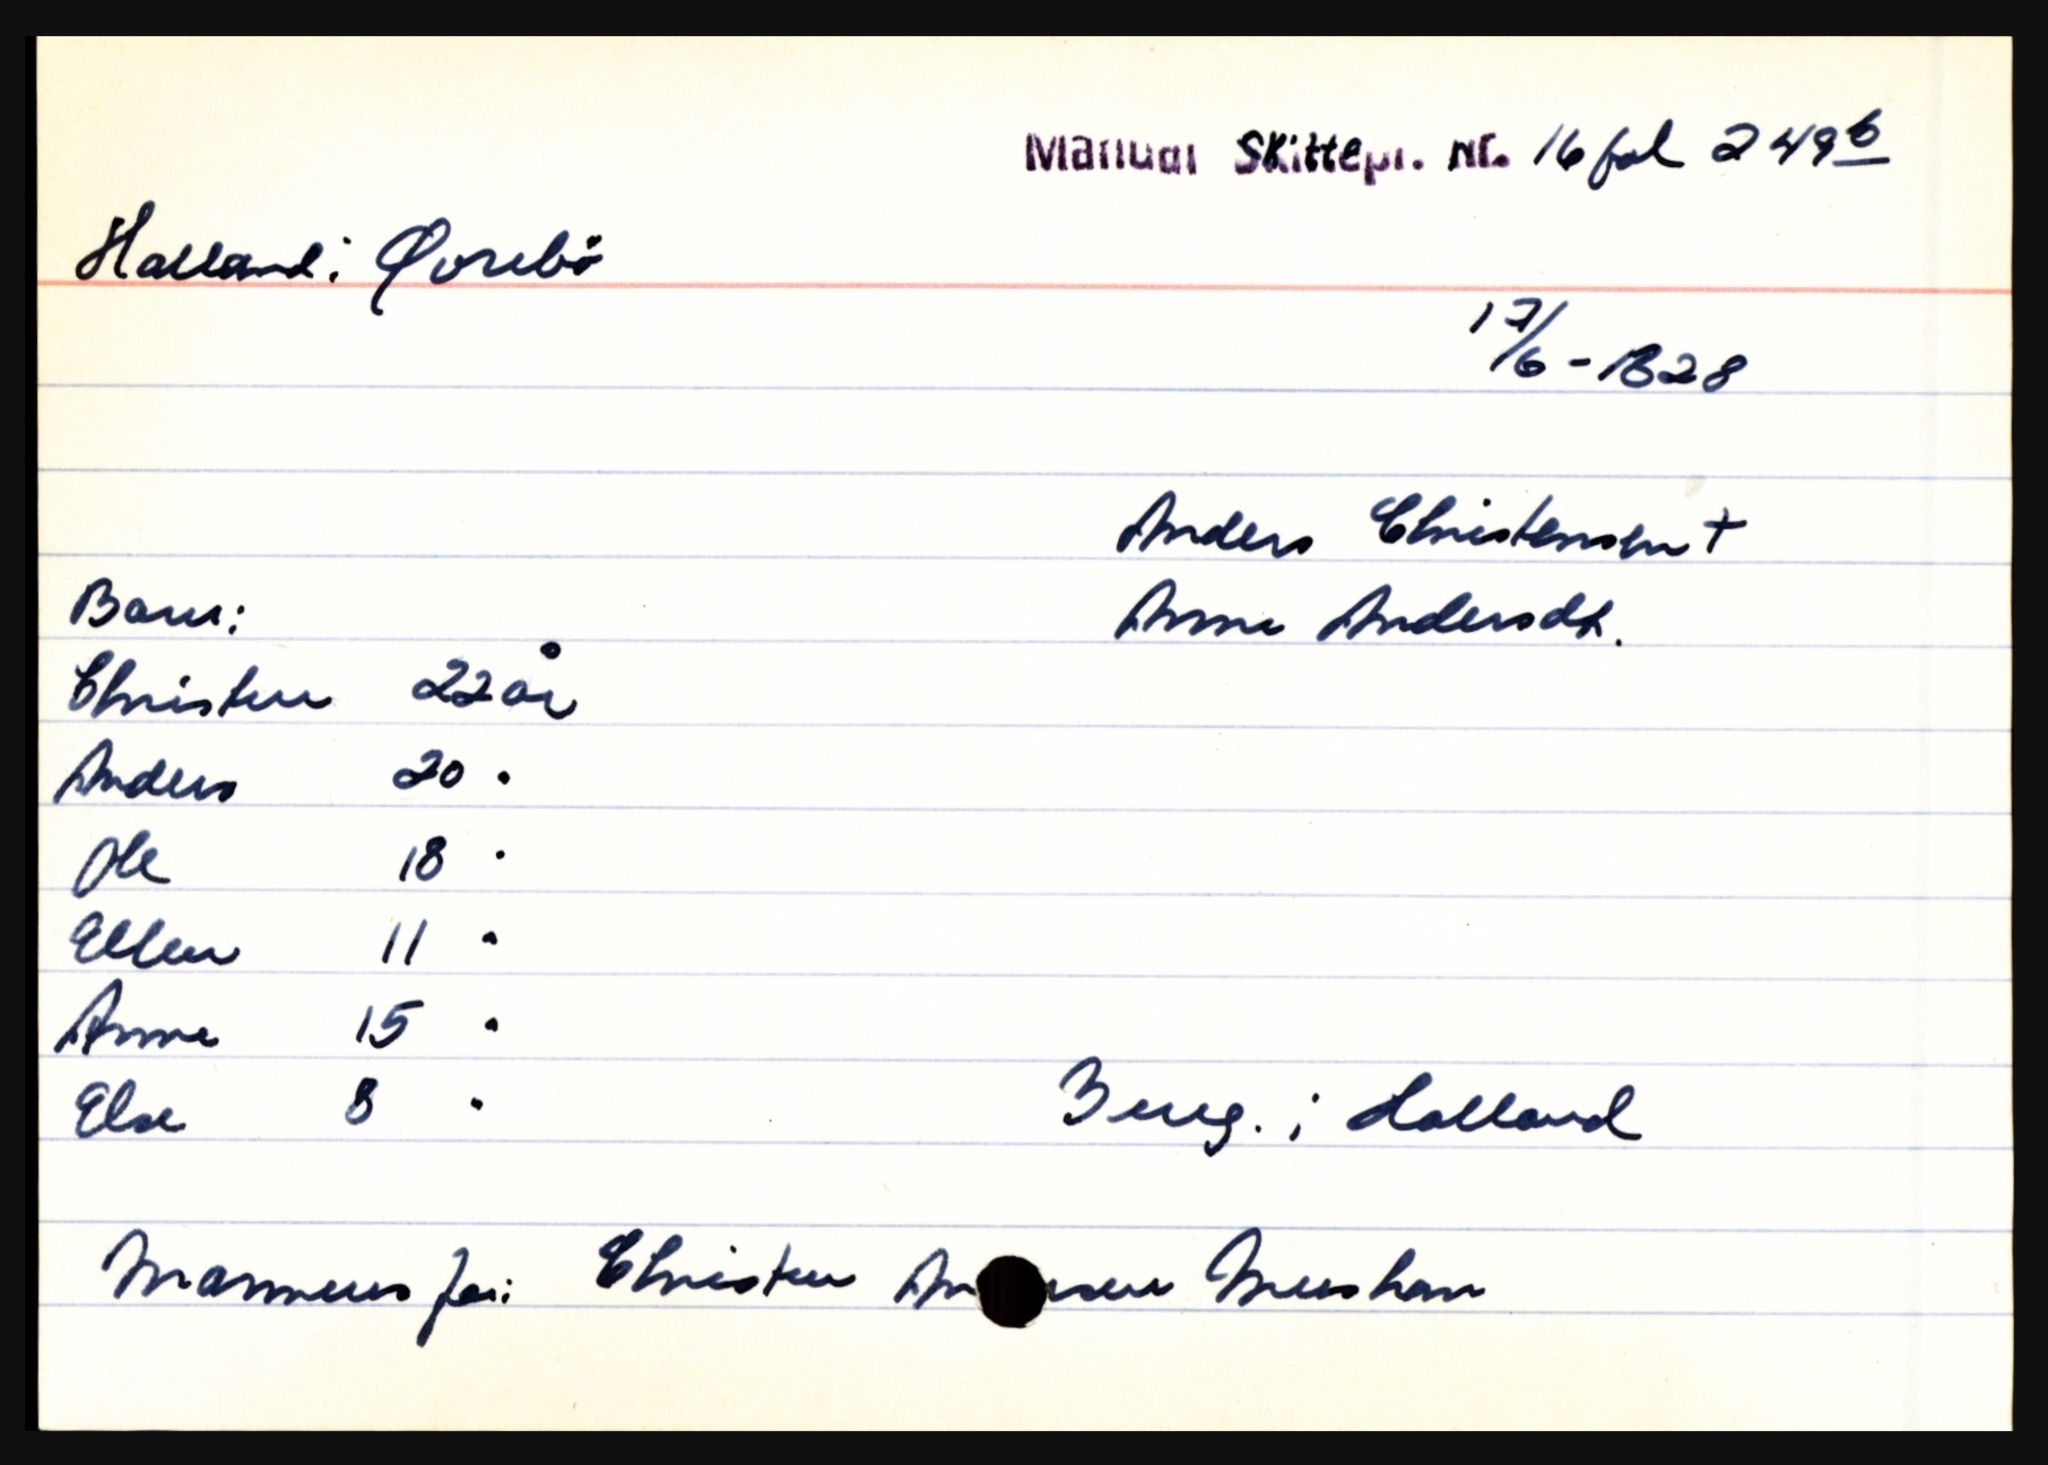 Manual Skiftepr. Nr. 16 fol 249b
Halland: Øvrebö
17/6-1828
Anders Christensen +
Barn:
Anne Andersdt.
Christen 22 år
Anders 20 "
Ole 18 "
Ellen 11 "
Anne 15 "
Else 8 "
Beveg. i Halland
Mannens far: Christen An rsen